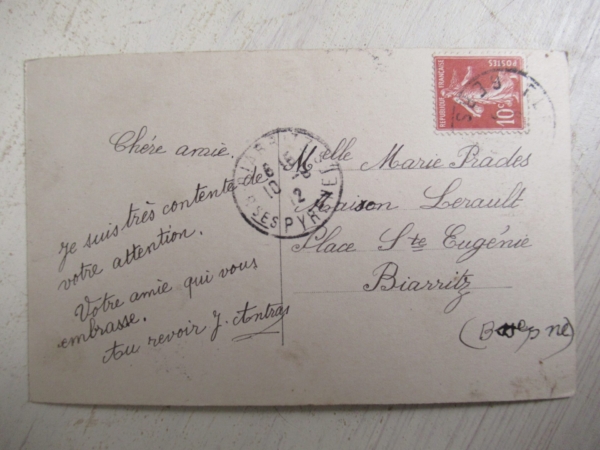 Chère amie.
Je suis très contente de
votre attention.
Votre amie qui vous
embrasse.
Au revoir J. Antras
Melle Marie Prades
Maison Lerault
Place Ste Eugénie
Biarritz
REPUBLIQUE FRANÇAISE
POSTES
10c
SES PYRENEES